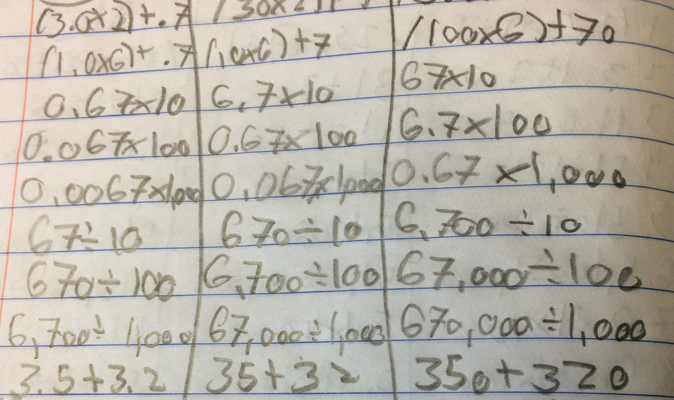 (3.0x2)+.7 (30x2)+7
(1.0x6)+.7 (10x6)+7 (100x6)+70
0.67x10 6.7x10 67x10
0.067x100 0.67x100 6.7x100
0.0067x1,000 0.067x1,000 0.67x1,000
67÷10 670÷10 6,700÷10
670÷100 6,700÷100 67,000÷100
6,700÷1,000 67,000÷1,000 670,000÷1,000
3.5+3.2 35+32 350+320